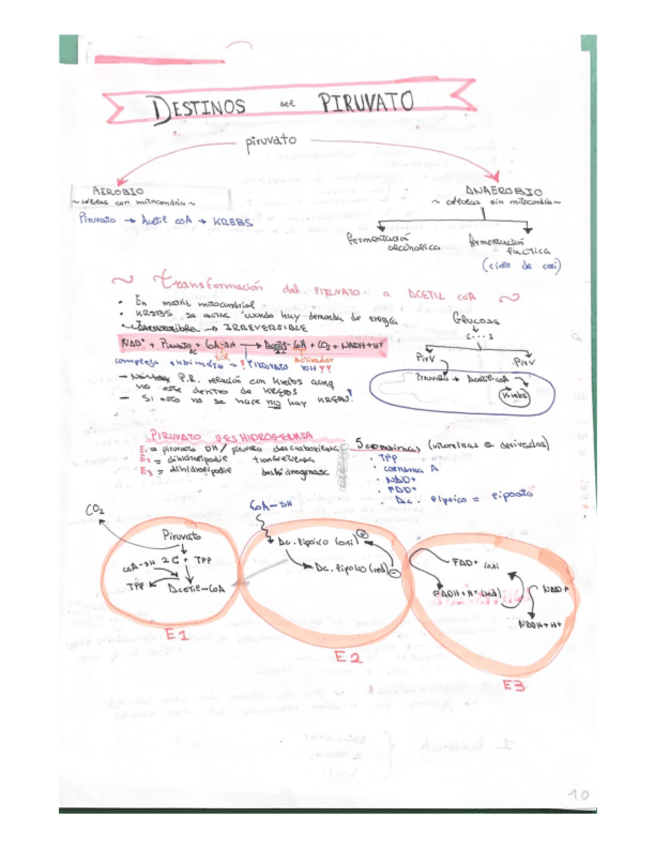 DESTINOS del PIRUVATO
piruvato
AEROBIO
~ células con mitocondria ~
Piruvato → Acetil coA → KREBS
ANAEROBIO
~ células sin mitocondria ~
Fermentación alcohólica
Fermentación láctica
(ciclo de cori)
~ Transformación del PIRUVATO a ACETIL COA ~
• En matriz mitocondrial
• KREBS se activa cuando hay demanda de energía
→ IRREVERSIBLE
NAD+ + Piruvato + CoA-SH → Acetil-CoA + CO2 + NADH+H+
complejo enzimático = PIRUVATO DH
activador
P.R. relación con Krebs aunq
no este dentro de KREBS
— Si esto no se hace no hay KREBS!
Glucosa
PirV
PirV
Piruvato → Acetil-coA
Krebs
PIRUVATO DESHIDROGENASA
E1 = piruvato DH / piruvato descarboxilasa
E2 = dihidrolipoil transacetilasa
E3 = dihidrolipoil deshidrogenasa
5 coenzimas (vitaminas o derivados)
• TPP
• coenzima A
• NAD+
• FAD+
• Ac. lipoico = lipoato
CO2
Piruvato
CoA-SH 2C + TPP
TPP
Acetil-CoA
E1
CoA-SH
Ac. lipoico (oxi)
Ac. lipoico (red)
E2
FAD+ (oxi)
FADH+H+ (red)
NAD+
NADH+H+
E3
10